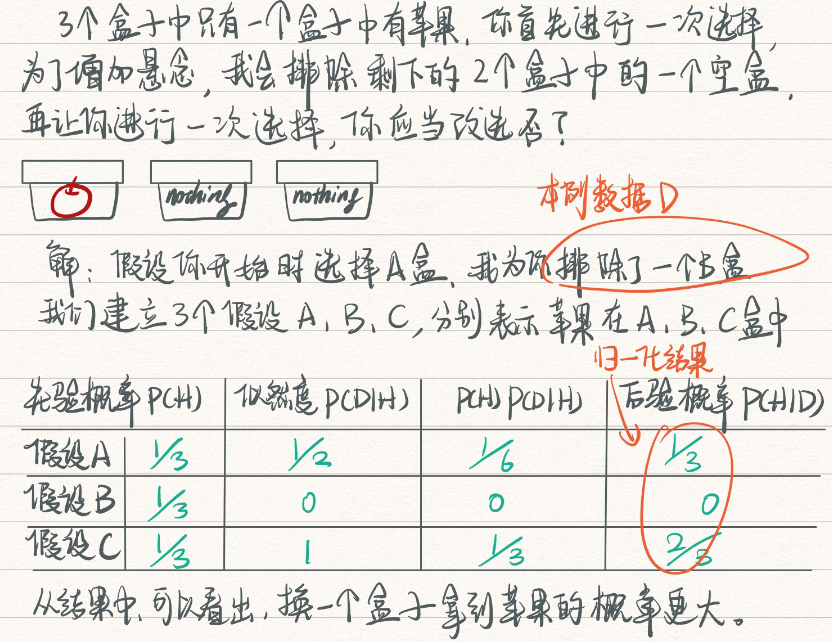 3个盒子中只有一个盒子中有苹果，你首先进行一次选择，
为了增加悬念，我会排除剩下的2个盒子中的一个空盒，
再让你进行一次选择，你应当改选否？
nothing nothing
本例数据D
解：假设你开始时选择A盒，我为你排除了一个B盒
我们建立3个假设A、B、C，分别表示苹果在A、B、C盒中
归一化结果
先验概率P(H) 似然度P(D|H) P(H)P(D|H) 后验概率P(H|D)
假设A 1/3 1/2 1/6 1/3
假设B 1/3 0 0 0
假设C 1/3 1 1/3 2/3
从结果中，可以看出，换一个盒子拿到苹果的概率更大。